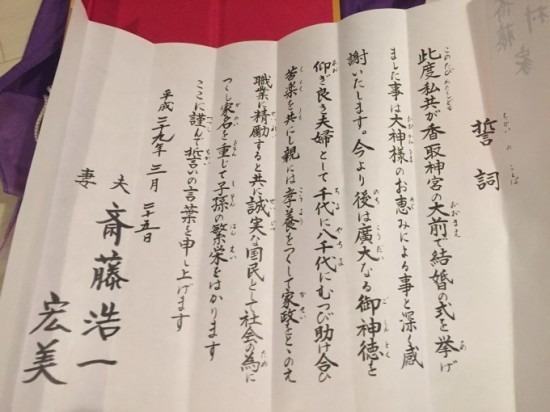 誓詞
此度私共が香取神宮の大前で結婚の式を挙げ
ました事は大神様のお恵みによる事と深く感
謝いたします。今より後は廣大なる御神徳を
仰ぎ良き夫婦として千代に八千代にむつび助け合ひ
苦楽を共にし親には孝養をつくして家政をとゝのえ
職業に精励すると共に誠実な国民として社会の為に
つくし家名を重じて子孫の繁栄をはかります
ここに謹んで誓いの言葉を申し上げます
平成二十九年三月二十五日
夫 斎藤浩一
妻 宏美